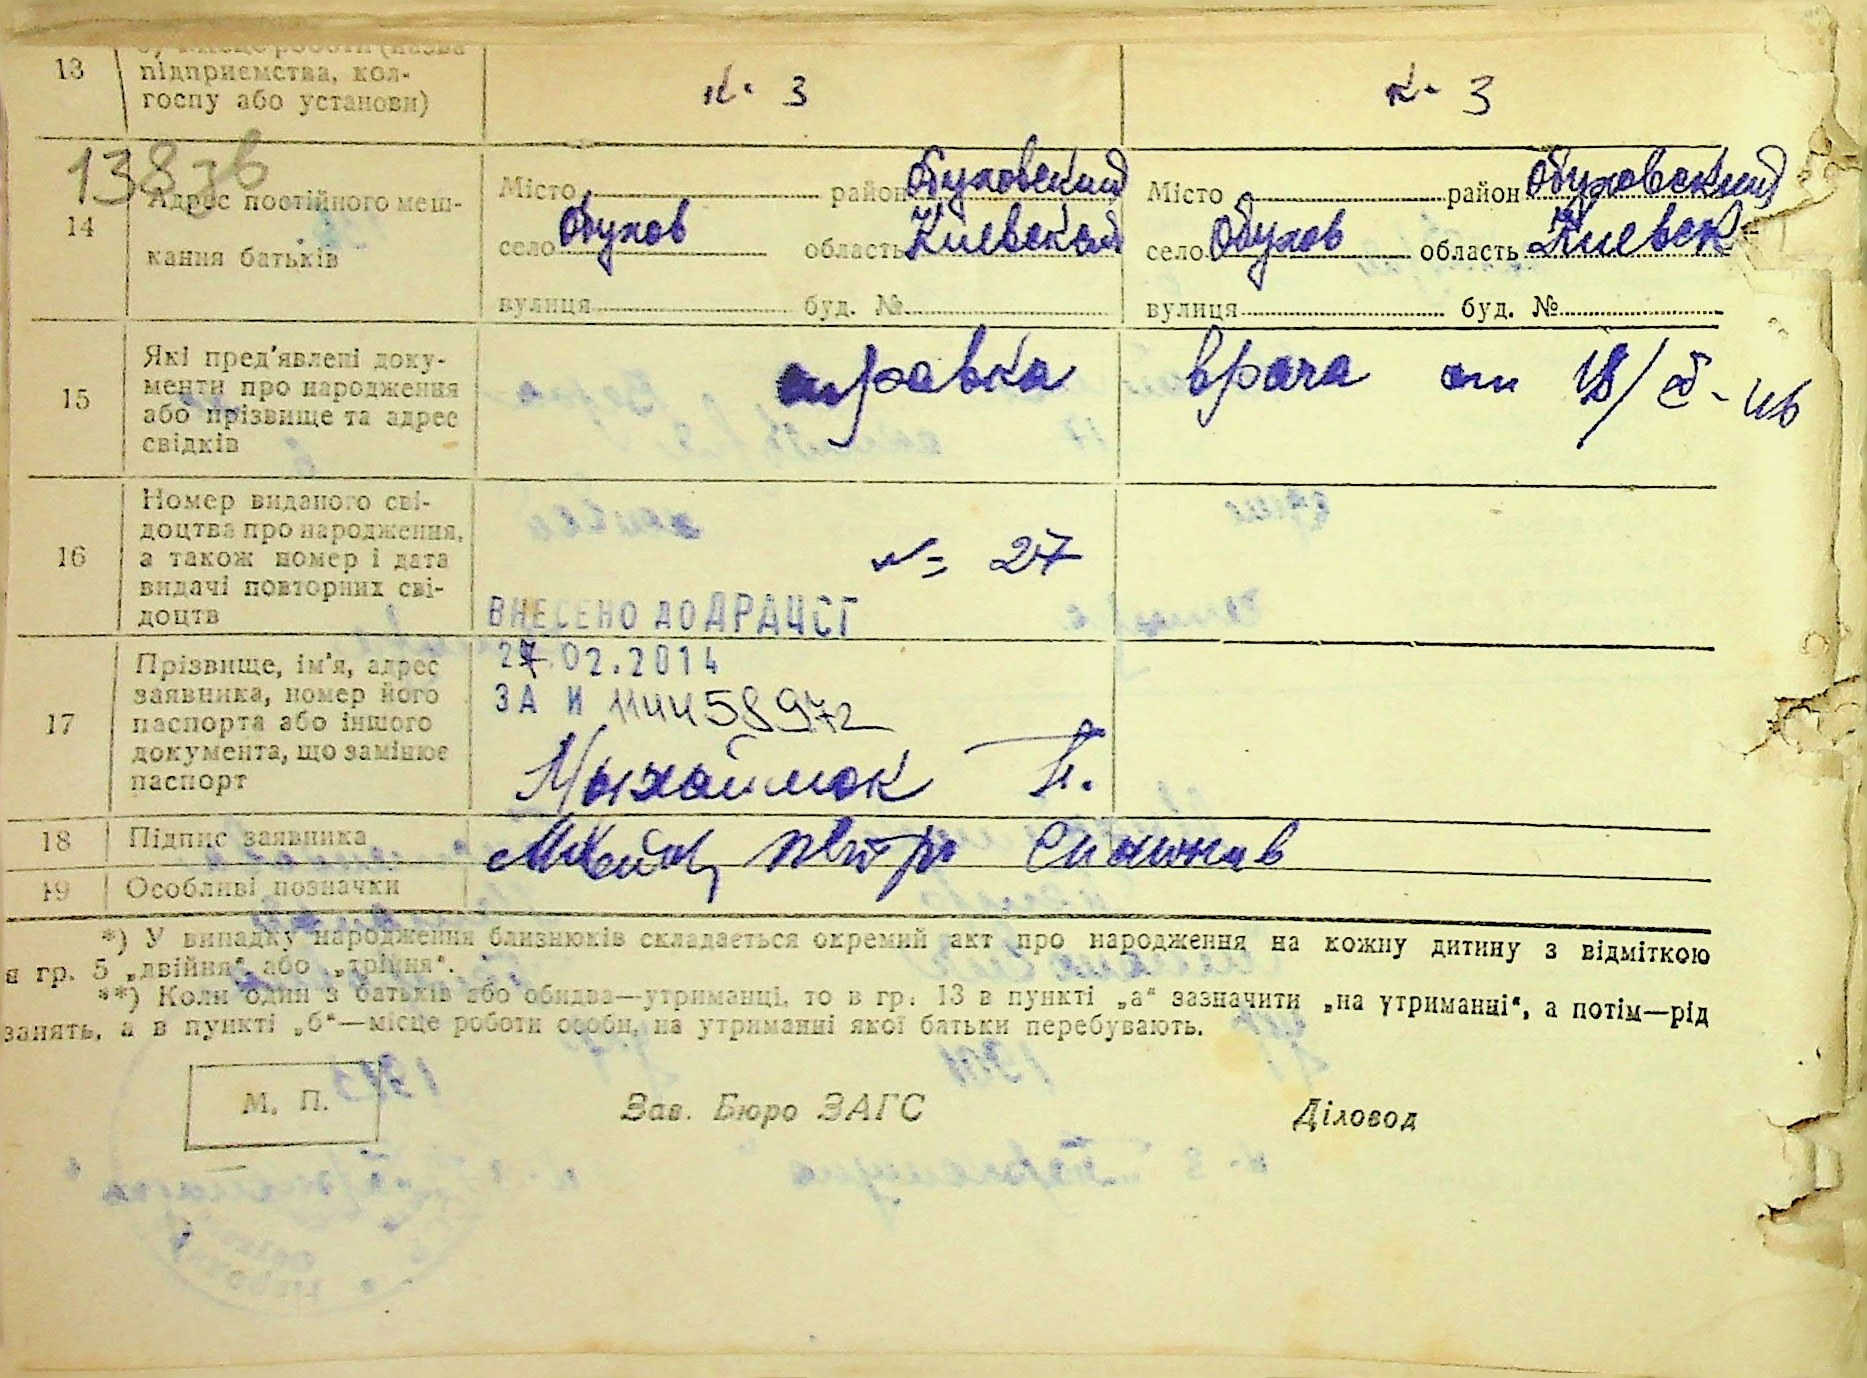 13 підприємства, кол-
госпу або установи) к. 3 к. 3
138зв
14 Адрес постійного меш-
кання батьків
Місто район Обуховский
село Обухов область Киевская
вулиця буд. №
Місто район Обуховский
село Обухов область Киевск
вулиця буд. №
15 Які пред'явлені доку-
менти про народження
або прізвище та адрес
свідків
справка врача от
16 Номер виданого сві-
доцтва про народження,
а також номер і дата
видачі повторних сві-
доцтв
№ 27
ВНЕСЕНО ДО ДРАЦСГ
27.02.2014
ЗА И 114458972
17 Прізвище, ім'я, адрес
заявника, номер його
паспорта або іншого
документа, що замінює
паспорт
П.
18 Підпис заявника
19 Особливі позначки
*) У випадку народження близнюків складається окремий акт про народження на кожну дитину з відміткою
в гр. 5 „двійня“ або „трійня“.
**) Коли один з батьків або обидва—утриманці, то в гр. 13 в пункті „а“ зазначити „на утриманні“, а потім—рід
занять, а в пункті „б“—місце роботи особи, на утриманні якої батьки перебувають.
М. П. Зав. Бюро ЗАГС Діловод